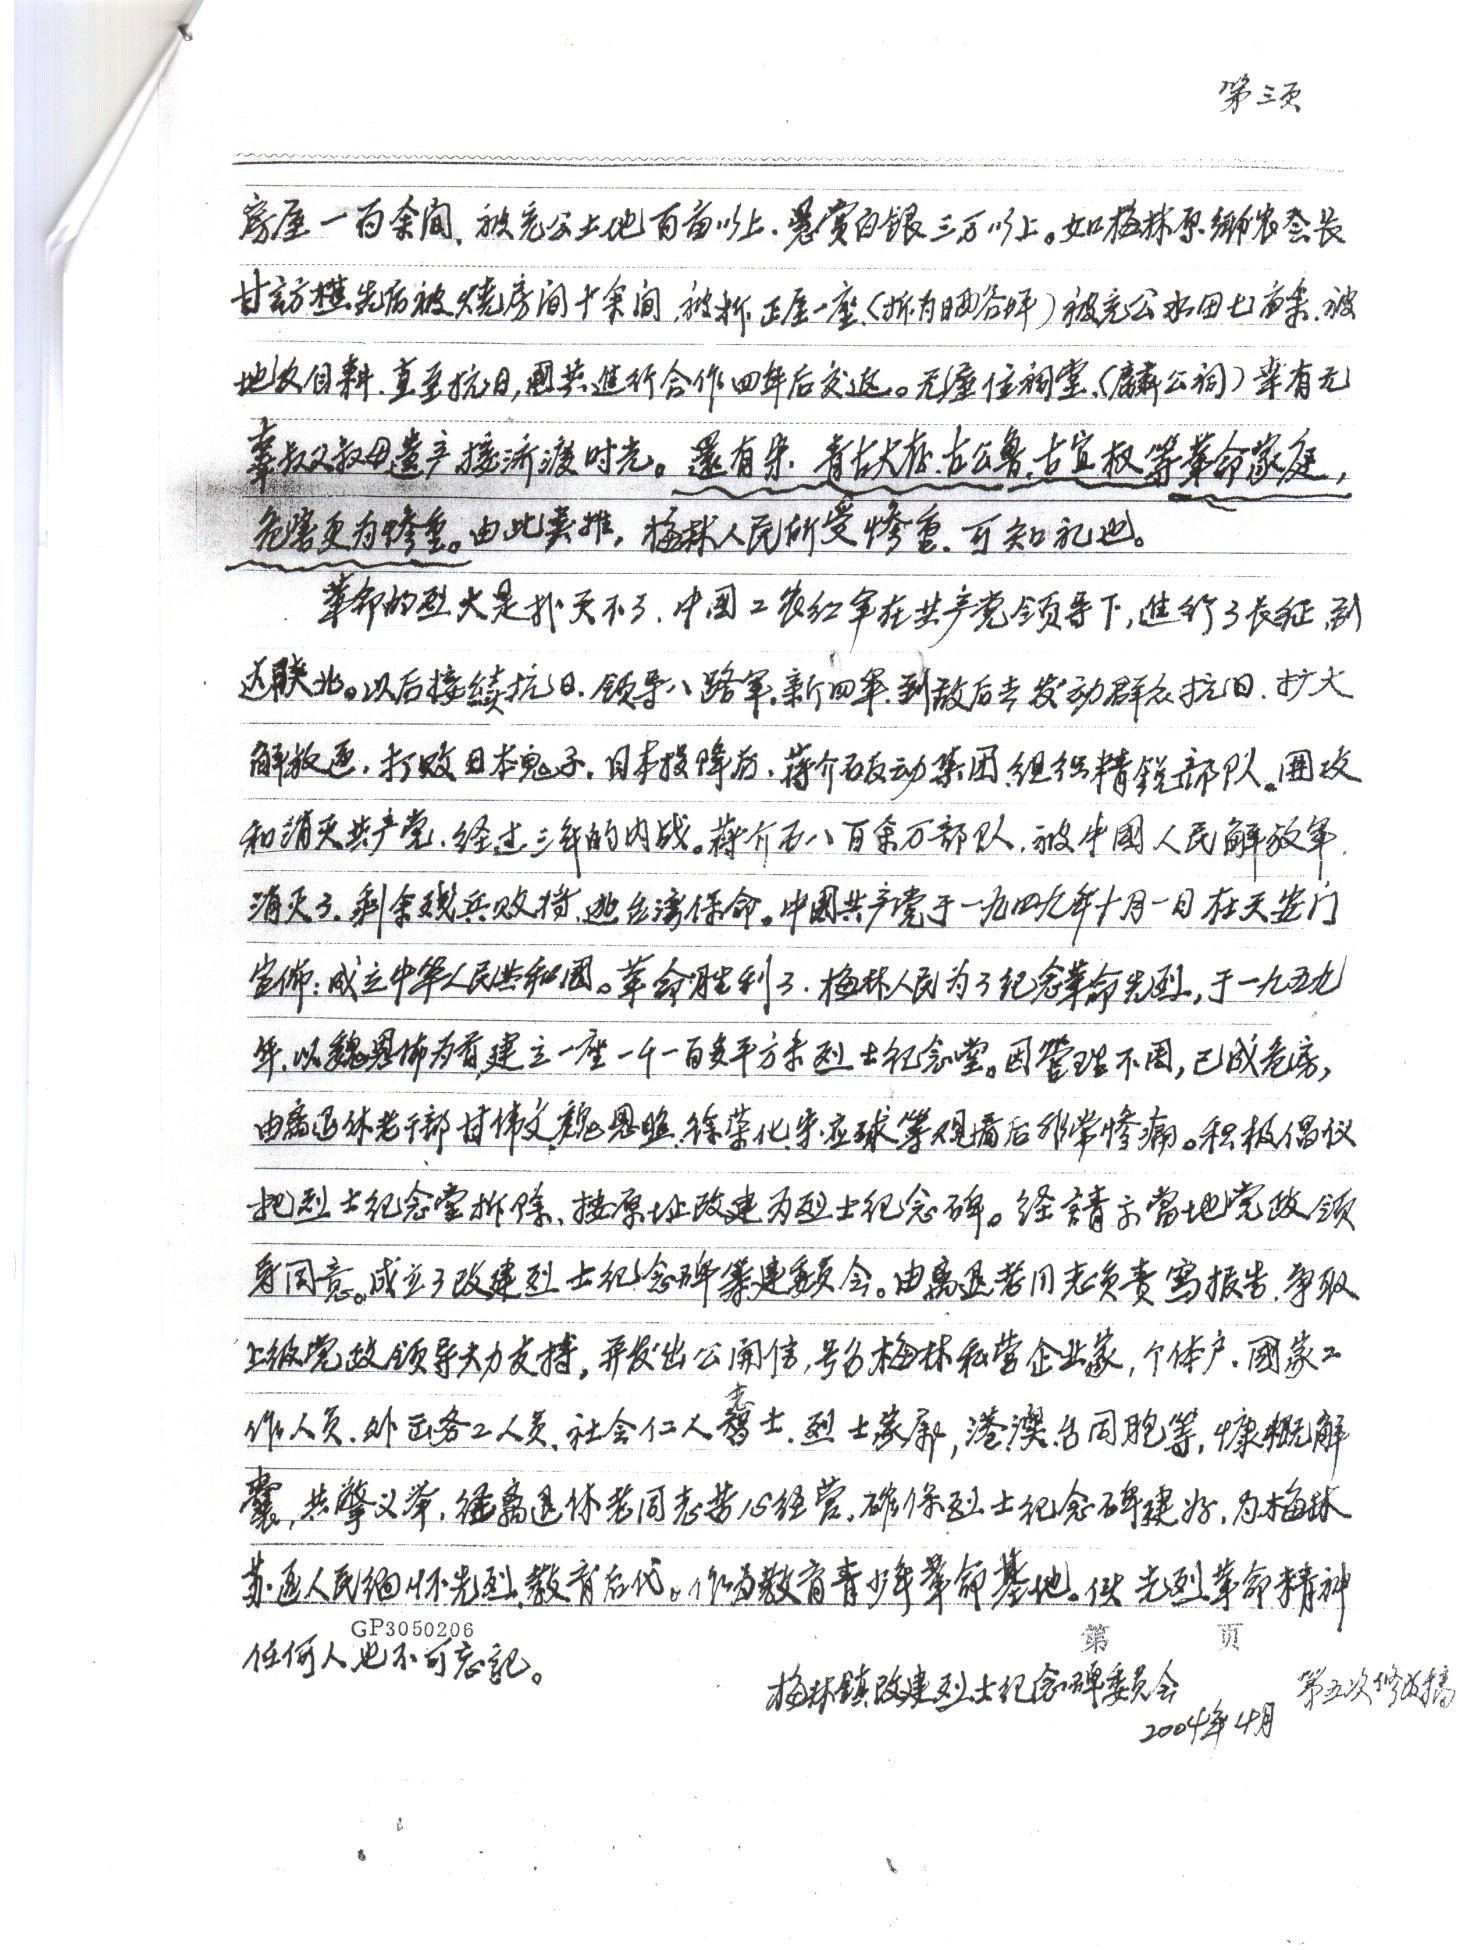 第三页
房屋一百余间、被充公土地百亩以上、悬赏白银三万以上。如梅林原乡农会长
甘访樵先后被烧房间十余间、被拆正屋一座、(拆为晒谷坪)被充公水田七亩余、被
地久自耕、直至抗日,國共進行合作四年后交返。无屋住祠堂、(麟公祠)幸有元
叔父叔母遗产接济渡时光。還有朱青、古大存、古公鲁、古宜权等革命家庭,
危害更为惨重。由此类推,梅林人民所受惨重、可知礼也。
革命的烈火是扑灭不了、中国工农红军在共产党领导下,進行了长征、到
达陕北。以后接续抗日、领导八路军、新四军、到敌后去发动群众抗日、扩大
解放区、打败日本鬼子、日本投降后、蒋介石反动集团、组织精锐部队。围攻
和消灭共产党、经过三年的内战。蒋介石八百余万部队、被中國人民解放军、
消灭了、剩余残兵败将、逃台湾保命。中國共产党于一九四九年十月一日在天安门
宣佈:成立中华人民共和國。革命胜利了、梅林人民为了纪念革命先烈,于一九五九
年、以魏恩佈为首建立一座一千一百多平方米烈士纪念堂。因管理不周,已成危房,
由离退休老干部甘伟文、魏恩照、徐荣化、朱应球等观看后非常惨痛。积极倡仪
把烈士纪念堂拆除、按原址改建为烈士纪念碑。经請示當地党政领
导同意。成立了改建烈士纪念碑筹建委员会。由离退老同志负责寫报告、争取
上级党政领导大力支持,并发出公開信,号召梅林私营企业家,个体户、國家工
作人员、外出务工人员、社会仁人志士、烈士家属,港澳台同胞等,慷慨解
囊,共擎义举,经离退休老同志苦心经营、确保烈士纪念碑建好,为梅林
苏区人民缅怀先烈、教育后代。作为教育青少年革命基地。使先烈革命精神
GP3050206 第 页
任何人也不可忘記。
梅林鎮改建烈士纪念碑委员会 第五次修改稿
2004年4月